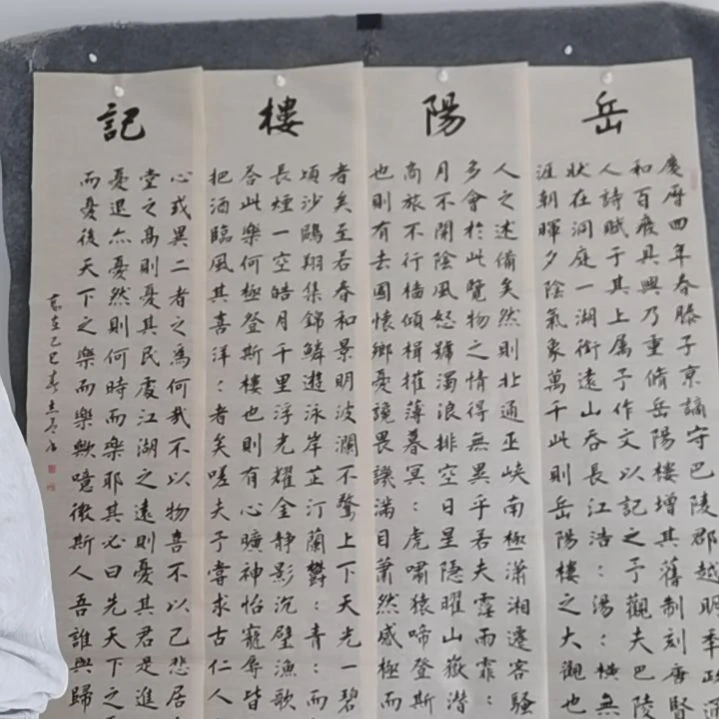 岳
慶曆四年春滕子京謫守巴陵郡越明季政通
和百廢具興乃重脩岳陽樓增其舊制刻唐賢
人詩賦于其上属予作文以記之予觀夫巴陵
状在洞庭一湖銜遠山吞長江浩：湯：橫無
涯朝暉夕陰氣象萬千此則岳陽樓之大觀也
陽
人之述備矣然則北通巫峡南極瀟湘遷客騷
多會於此覽物之情得無異乎若夫霪雨霏：
月不開陰風怒號濁浪排空日星隱曜山嶽潜
商旅不行檣傾楫摧薄暮冥：虎嘯猿啼登斯
也則有去國懷鄉憂讒畏譏滿目蕭然感極而
樓
者矣至若春和景明波瀾不驚上下天光一碧
頃沙鷗翔集錦鱗遊泳岸芷汀蘭鬱：青：而
長煙一空皓月千里浮光耀金静影沉璧漁歌
答此樂何極登斯樓也則有心曠神怡寵辱皆
把酒臨風其喜洋：者矣嗟夫予嘗求古仁人
記
心或異二者之為何哉不以物喜不以己悲居
堂之高則憂其民處江湖之遠則憂其君是進
憂退亦憂然則何時而樂耶其必曰先天下之
而憂後天下之樂而樂歟噫微斯人吾誰與歸
歲在乙巳春